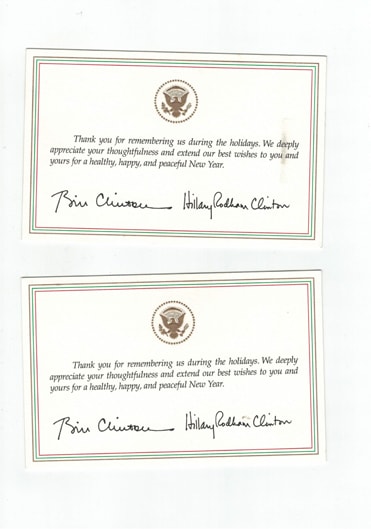 Thank you for remembering us during the holidays. We deeply
appreciate your thoughtfulness and extend our best wishes to you and
yours for a healthy, happy, and peaceful New Year.
Bill Clinton Hillary Rodham Clinton
Thank you for remembering us during the holidays. We deeply
appreciate your thoughtfulness and extend our best wishes to you and
yours for a healthy, happy, and peaceful New Year.
Bill Clinton Hillary Rodham Clinton